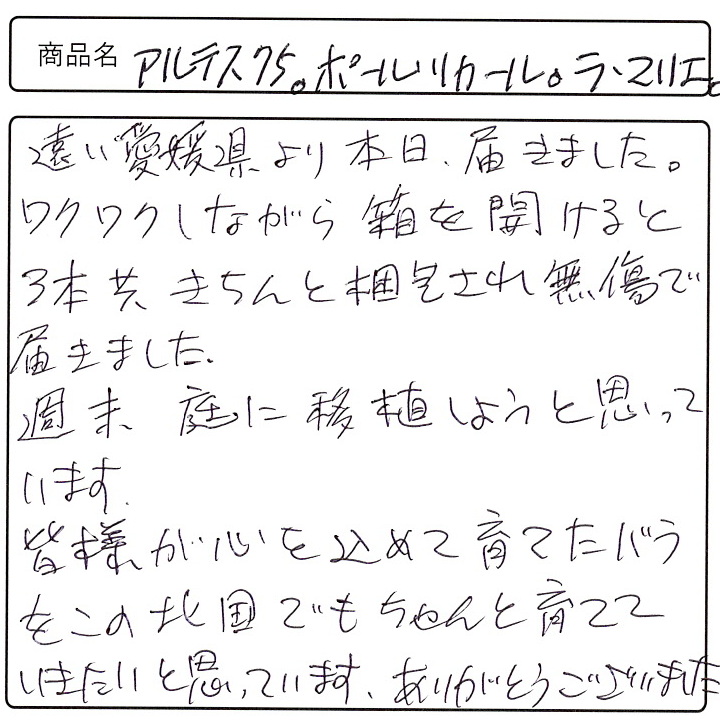 商品名 アルテス75。ポールリカール。ラ・マリエ。
遠い愛媛県より本日、届きました。
ワクワクしながら箱を開けると
3本共、きちんと梱包され無傷で
届きました。
週末、庭に移植しようと思って
います。
皆様が心を込めて育てたバラ
をこの北国でもちゃんと育てて
いきたいと思っています、ありがとうございました